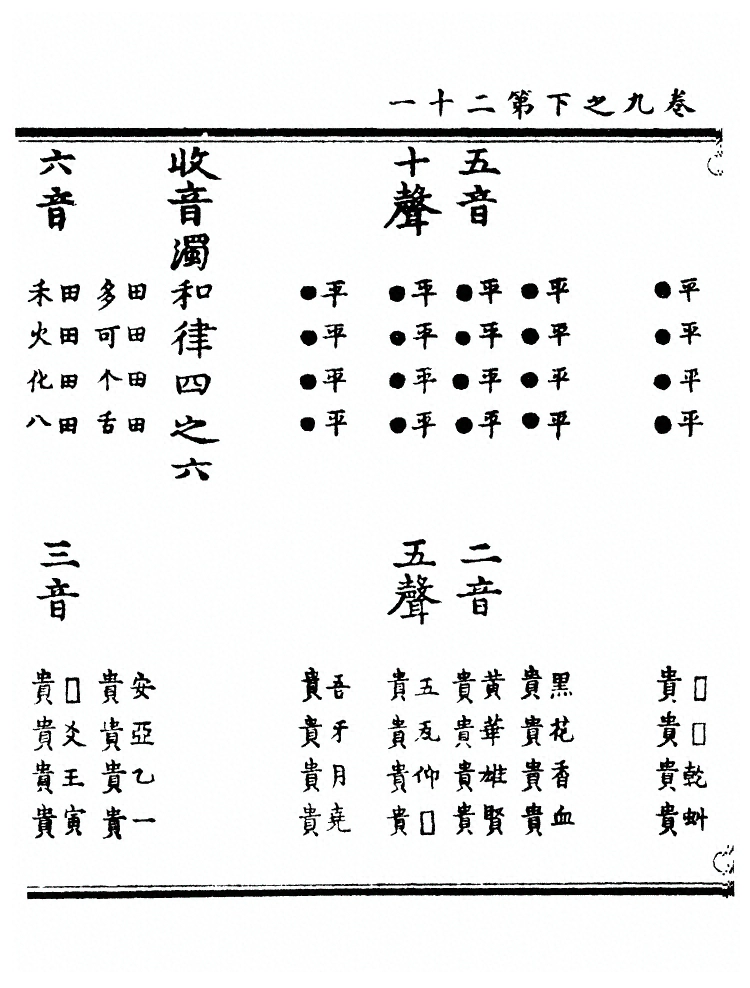 卷九之下第二十一
平平平平
●●●●
□□乾虯
貴貴貴貴
平平平平
●●●●
黑花香血
貴貴貴貴
五音
平平平平
●●●●
二音
黃華雄賢
貴貴貴貴
十聲
平平平平
●●●●
五聲
五瓦仰□
貴貴貴貴
平平平平
●●●●
吾牙月堯
貴貴貴貴
收音濁和律四之六
田田田田
多可个舌
安亞乙一
貴貴貴貴
六音
田田田田
禾火化八
三音
□爻王寅
貴貴貴貴